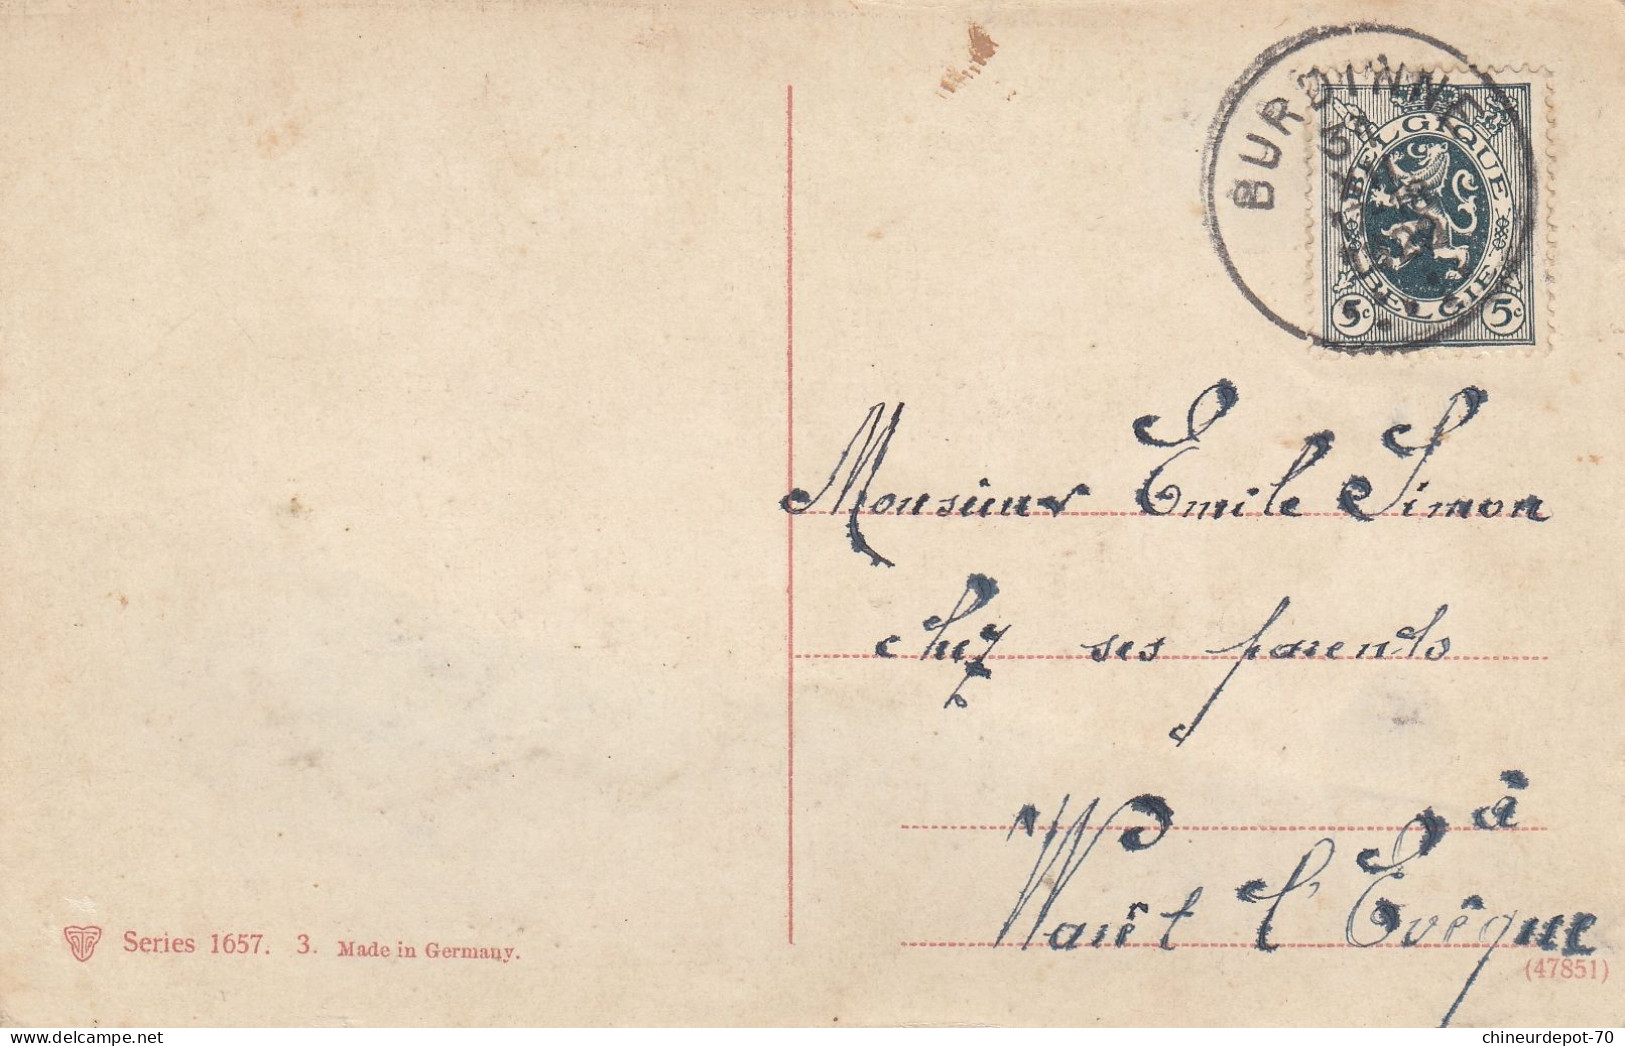 BURDINNE
BELGIQUE
BELGIE
5c 5c
Monsieur Emile Simon
chez ses parents
à
Warêt l'Evêque
Series 1657. 3. Made in Germany.
(47851)
delcampe.net
chineurdepot-70